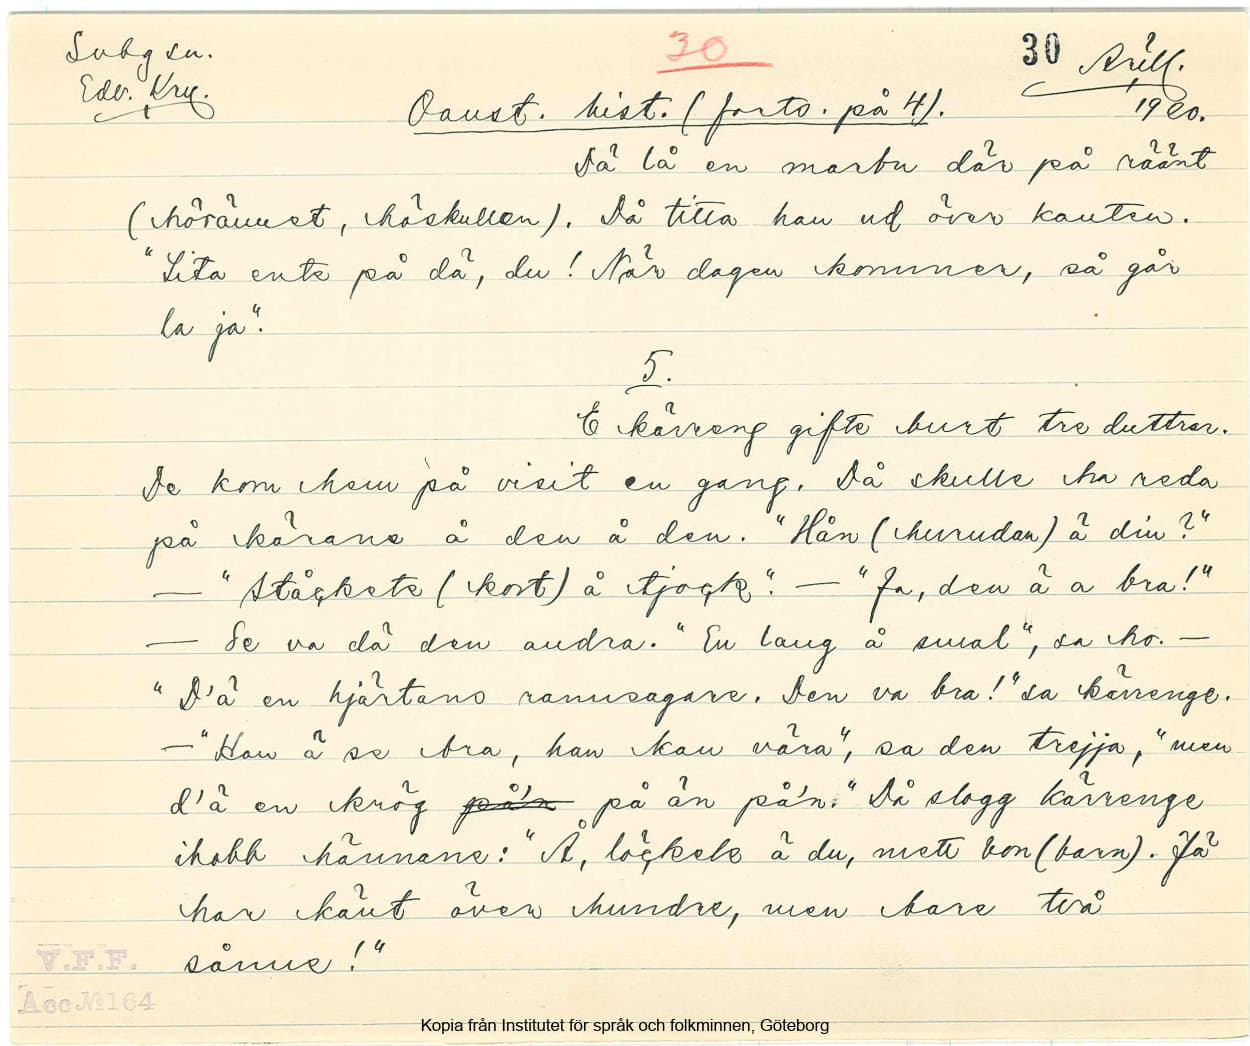 30
30
Subgsn.
Edv. Kry.
Arill.
1920.
Oanst. hist. (forts. på 4).
Dä lå en marbu där på räänt
(hörännet, höskullen). Då titta han ud över kanten.
"Lita ente på dä, du! När dagen kommer, så går
la ja".
5.
E kärreng gifte burt tre duttrer.
De kom hem på visit en gang. Då skulle ha reda
på kärane å den å den. "Hån (hurudan) ä din?"
— "Ståckete (kort) å tjock". — "Ja, den ä a bra!"
— Se va dä den andra. "En lang å smal", sa ho. —
"D'ä en hjärtans ramsagare. Den va bra!" sa kärrenge.
— "Han ä se bra, han kan vära", sa den trejja, "men
d'ä en krög på än på'n." Då slogg kärrenge
ihobb hännane: "Å, löckele ä du, mett bon (barn). Jä
har känt över hundre, men bare två
sånne!"
V.F.F.
Acc № 164
Kopia från Institutet för språk och folkminnen, Göteborg